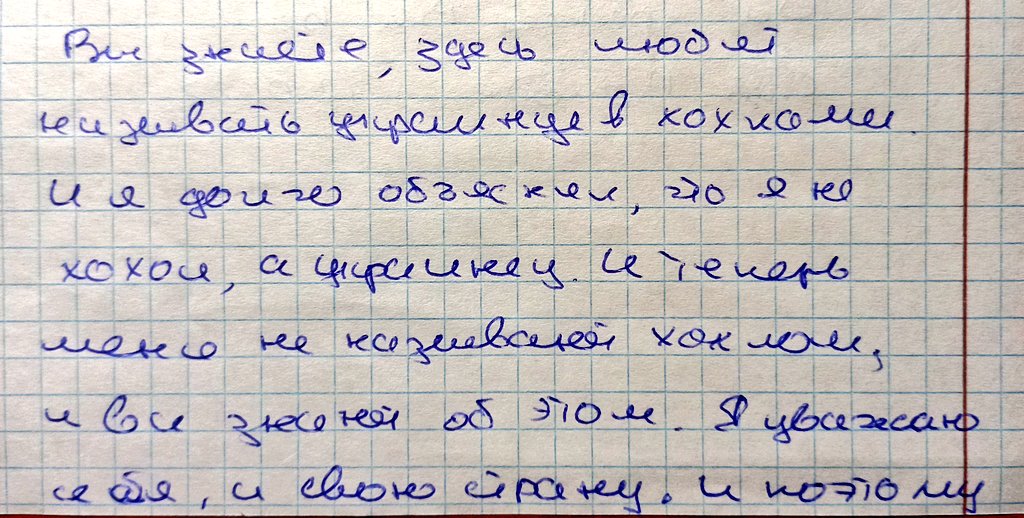 Вы знаете, здесь любят
называть украинцев хохлами.
И я долго объяснял, что я не
хохол, а украинец. И теперь
меня не называют хохлом,
и все знают об этом. Я уважаю
себя, и свою страну. И поэтому